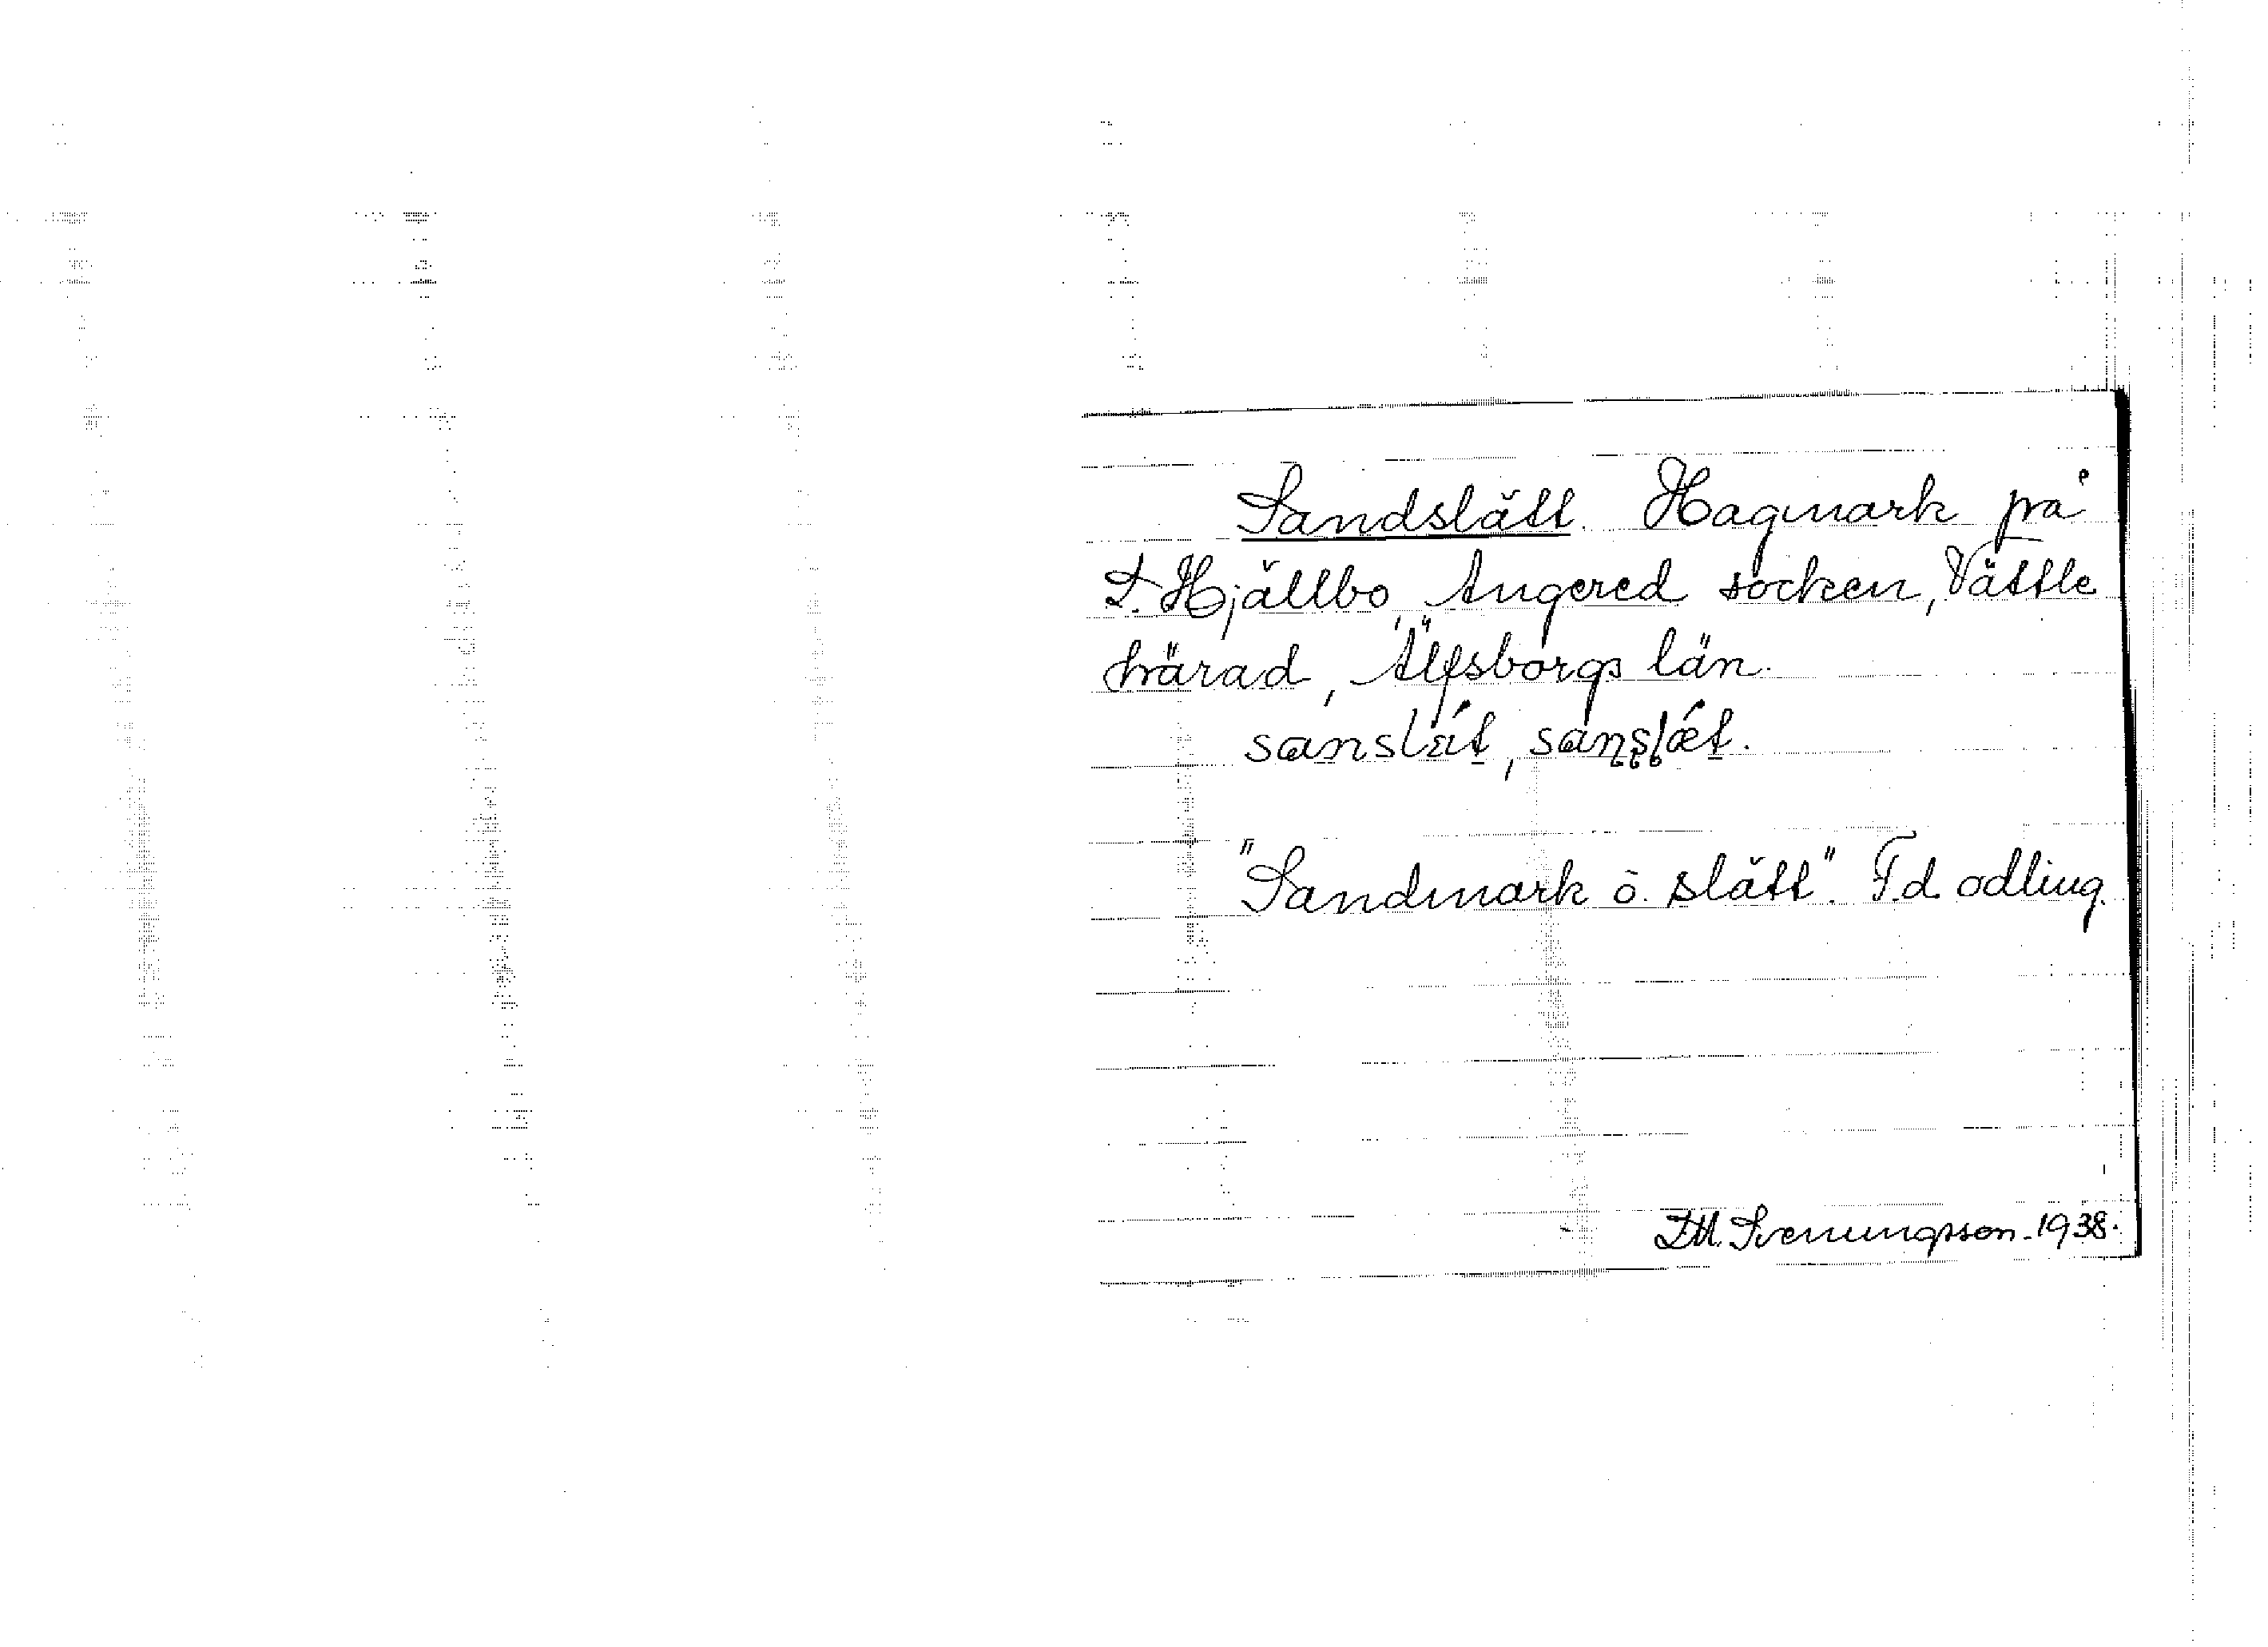 Sandslätt. Hagmark på
L. Hjällbo, Angered socken, Vättle
härad, Älfsborgs län.
"Sandmark o. slätt". F.d. odling.
Svenungsson. 1938.